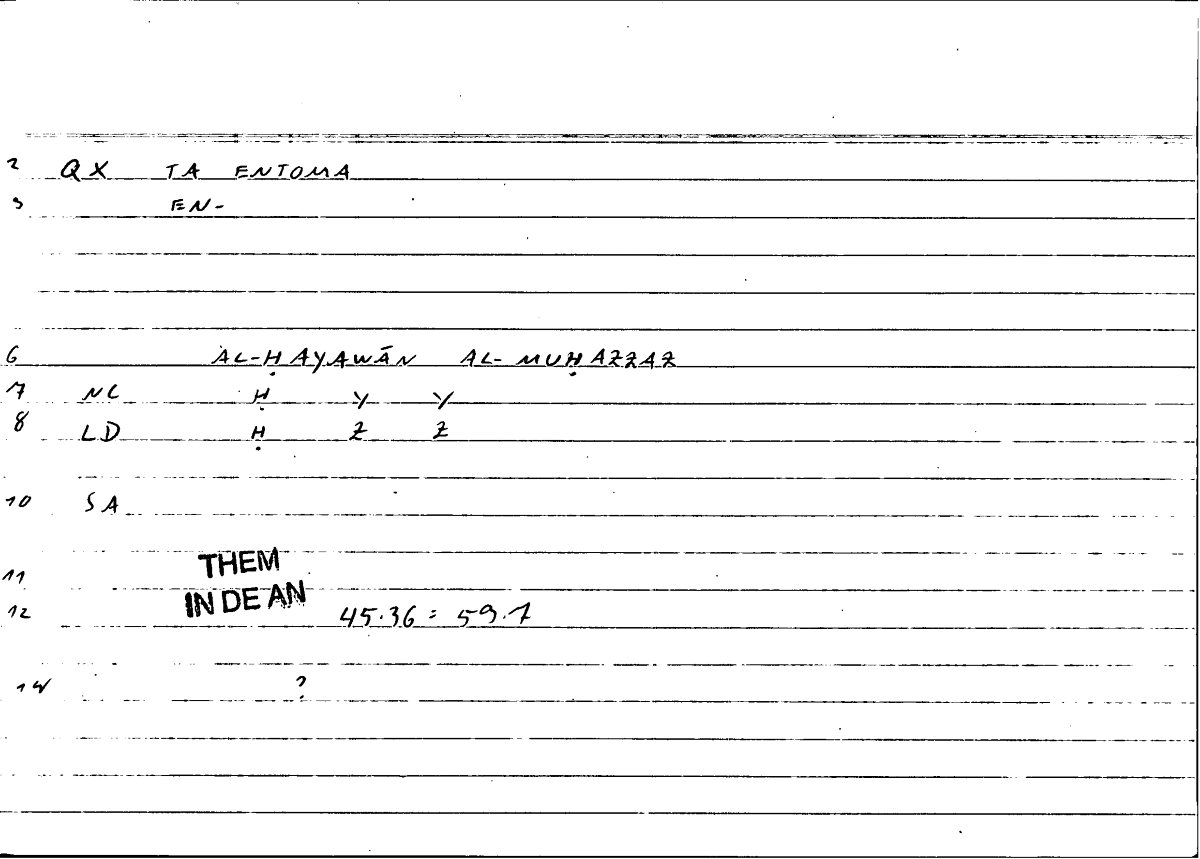 2 QX TA ENTOMA
3 EN-
6 AL-ḤAYAWĀN AL-MUḤAZZAZ
7 NC Ḥ Y Y
8 LD Ḥ Z Z
10 SA
THEM
11
IN DE AN
12 45.36 : 59.7
14 ?